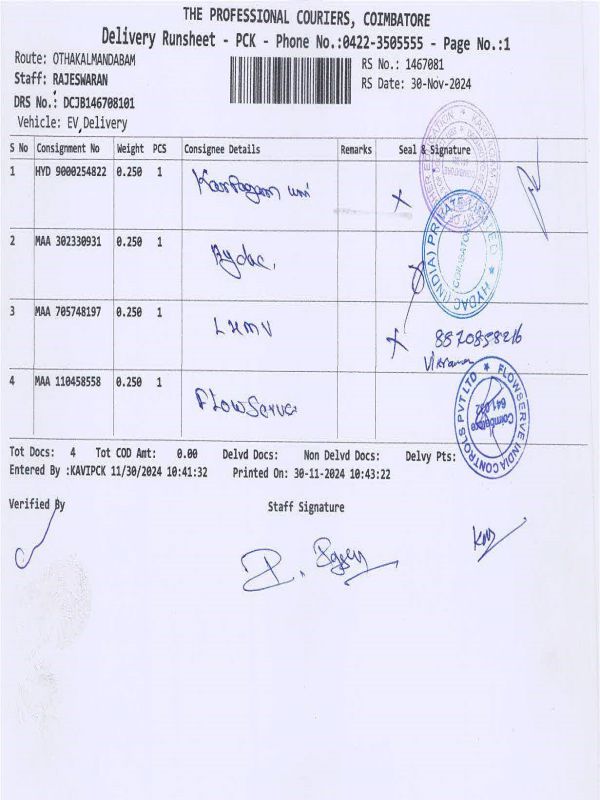 THE PROFESSIONAL COURIERS, COIMBATORE
Delivery Runsheet - PCK - Phone No.:0422-3505555 - Page No.:1
Route: OTHAKALMANDABAM
RS No.: 1467081
Staff: RAJESWARAN
RS Date: 30-Nov-2024
DRS No.: DCJB146708101
Vehicle: EV,Delivery
S No Consignment No Weight PCS Consignee Details Remarks Seal & Signature
1 HYD 9000254822 0.250 1 Karpagam uni
2 MAA 302330931 0.250 1 Hydac.
HYDAC (INDIA) PRIVATE LIMITED
COIMBATORE
3 MAA 705748197 0.250 1 LMMV
4 MAA 110458558 0.250 1 FlowServe
FLOWSERVE INDIA CONTROLS PVT LTD
Coimbatore
641 032
Tot Docs: 4 Tot COD Amt: 0.00 Delvd Docs: Non Delvd Docs: Delvy Pts:
Entered By :KAVIPCK 11/30/2024 10:41:32 Printed On: 30-11-2024 10:43:22
Verified By
Staff Signature